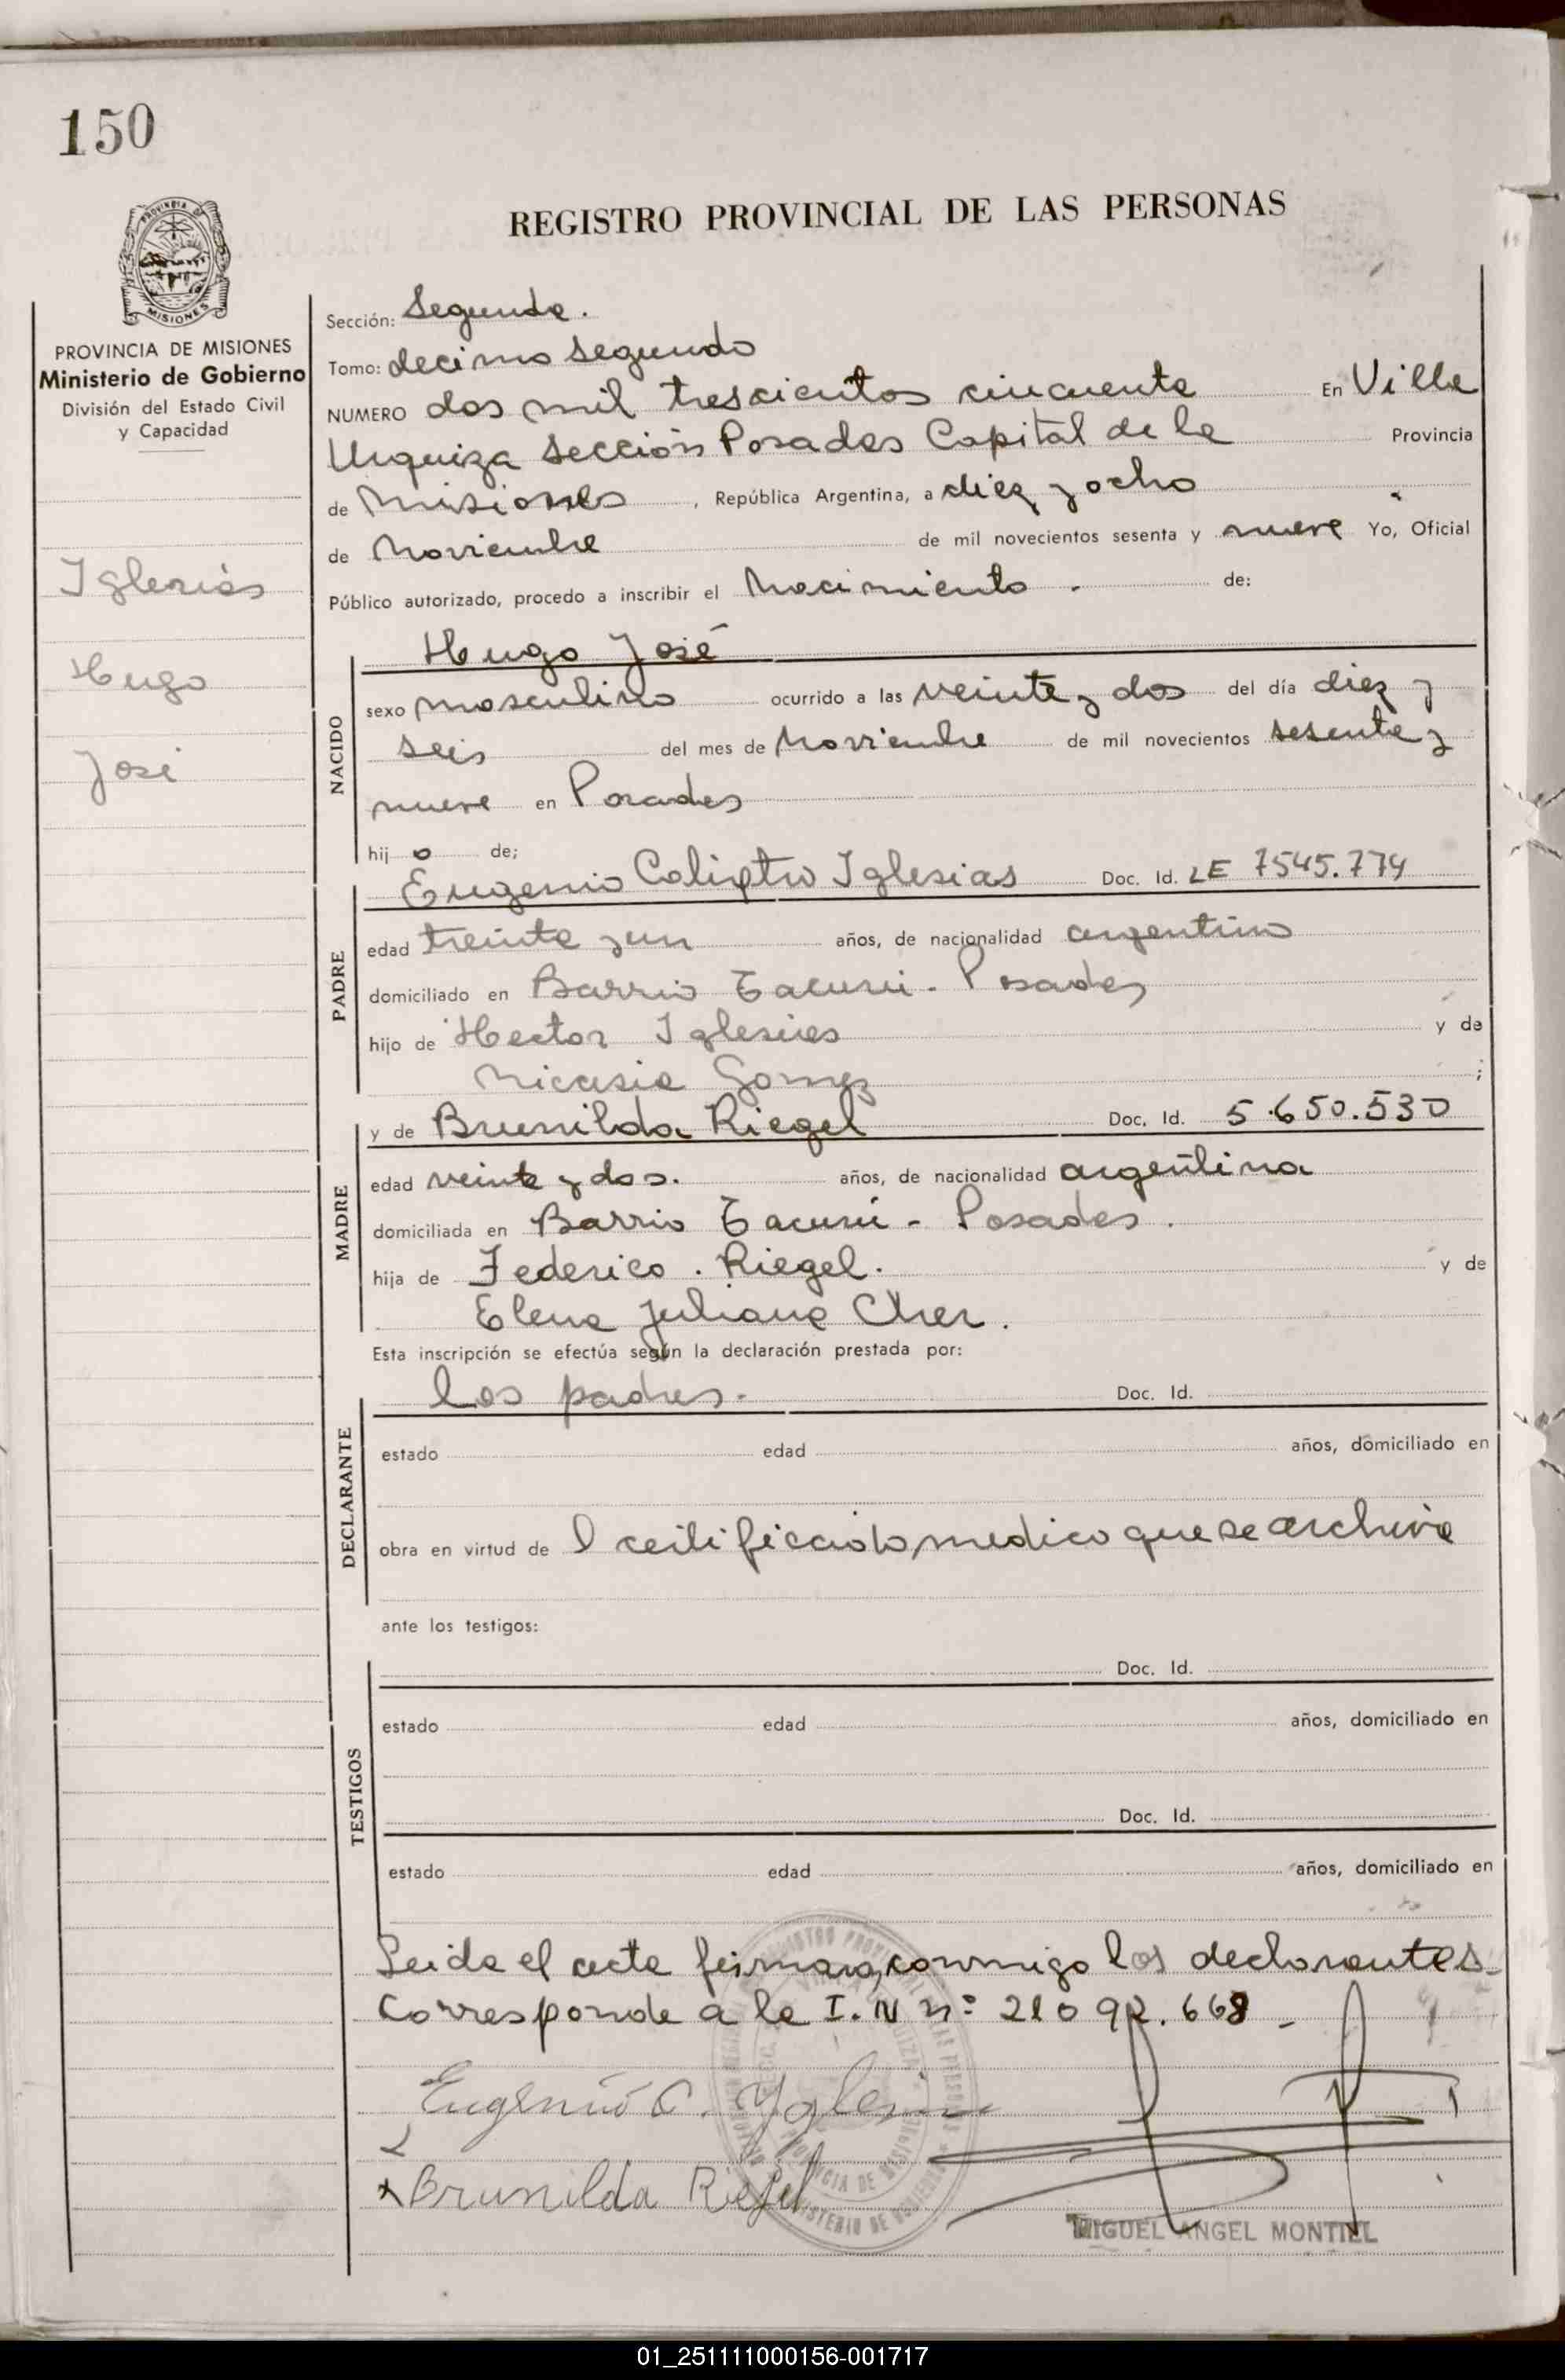 150
REGISTRO PROVINCIAL DE LAS PERSONAS
PROVINCIA DE MISIONES
Ministerio de Gobierno
División del Estado Civil
y Capacidad
Iglesias
Hugo
José
Sección: Segunda.
Tomo: decimo segundo
NUMERO dos mil trescientos cincuenta En Villa
Urquiza Sección Posadas Capital de la Provincia
de Misiones, República Argentina, a diez y ocho
de Noviembre de mil novecientos sesenta y nueve Yo, Oficial
Público autorizado, procedo a inscribir el Nacimiento. de:
Hugo José
NACIDO
sexo masculino ocurrido a las veinte y dos del día diez y
seis del mes de Noviembre de mil novecientos sesenta y
nueve en Posadas
hijo de;
Eugenio Calixtro Iglesias Doc. Id. LE 7545.774
PADRE
edad treinta y un años, de nacionalidad argentino
domiciliado en Barrio Tacurú - Posadas
hijo de Hector Iglesias y de
Nicasia Gomez ;
y de Brunilda Riegel Doc. Id. 5.650.530
MADRE
edad veinte y dos. años, de nacionalidad argentina
domiciliada en Barrio Tacurú - Posadas.
hija de Federico. Riegel. y de
Elena Juliana Cher.
Esta inscripción se efectúa según la declaración prestada por:
los padres. Doc. Id.
DECLARANTE
estado edad años, domiciliado en
obra en virtud de l certificado medico que se archiva
ante los testigos:
Doc. Id.
TESTIGOS
estado edad años, domiciliado en
Doc. Id.
estado edad años, domiciliado en
Leida el acta firman conmigo los declarantes.
Corresponde a la I. N nº 21092.668 -
Eugenio C. Yglesias
x Brunilda Riegel
MIGUEL ANGEL MONTIEL
01_251111000156-001717